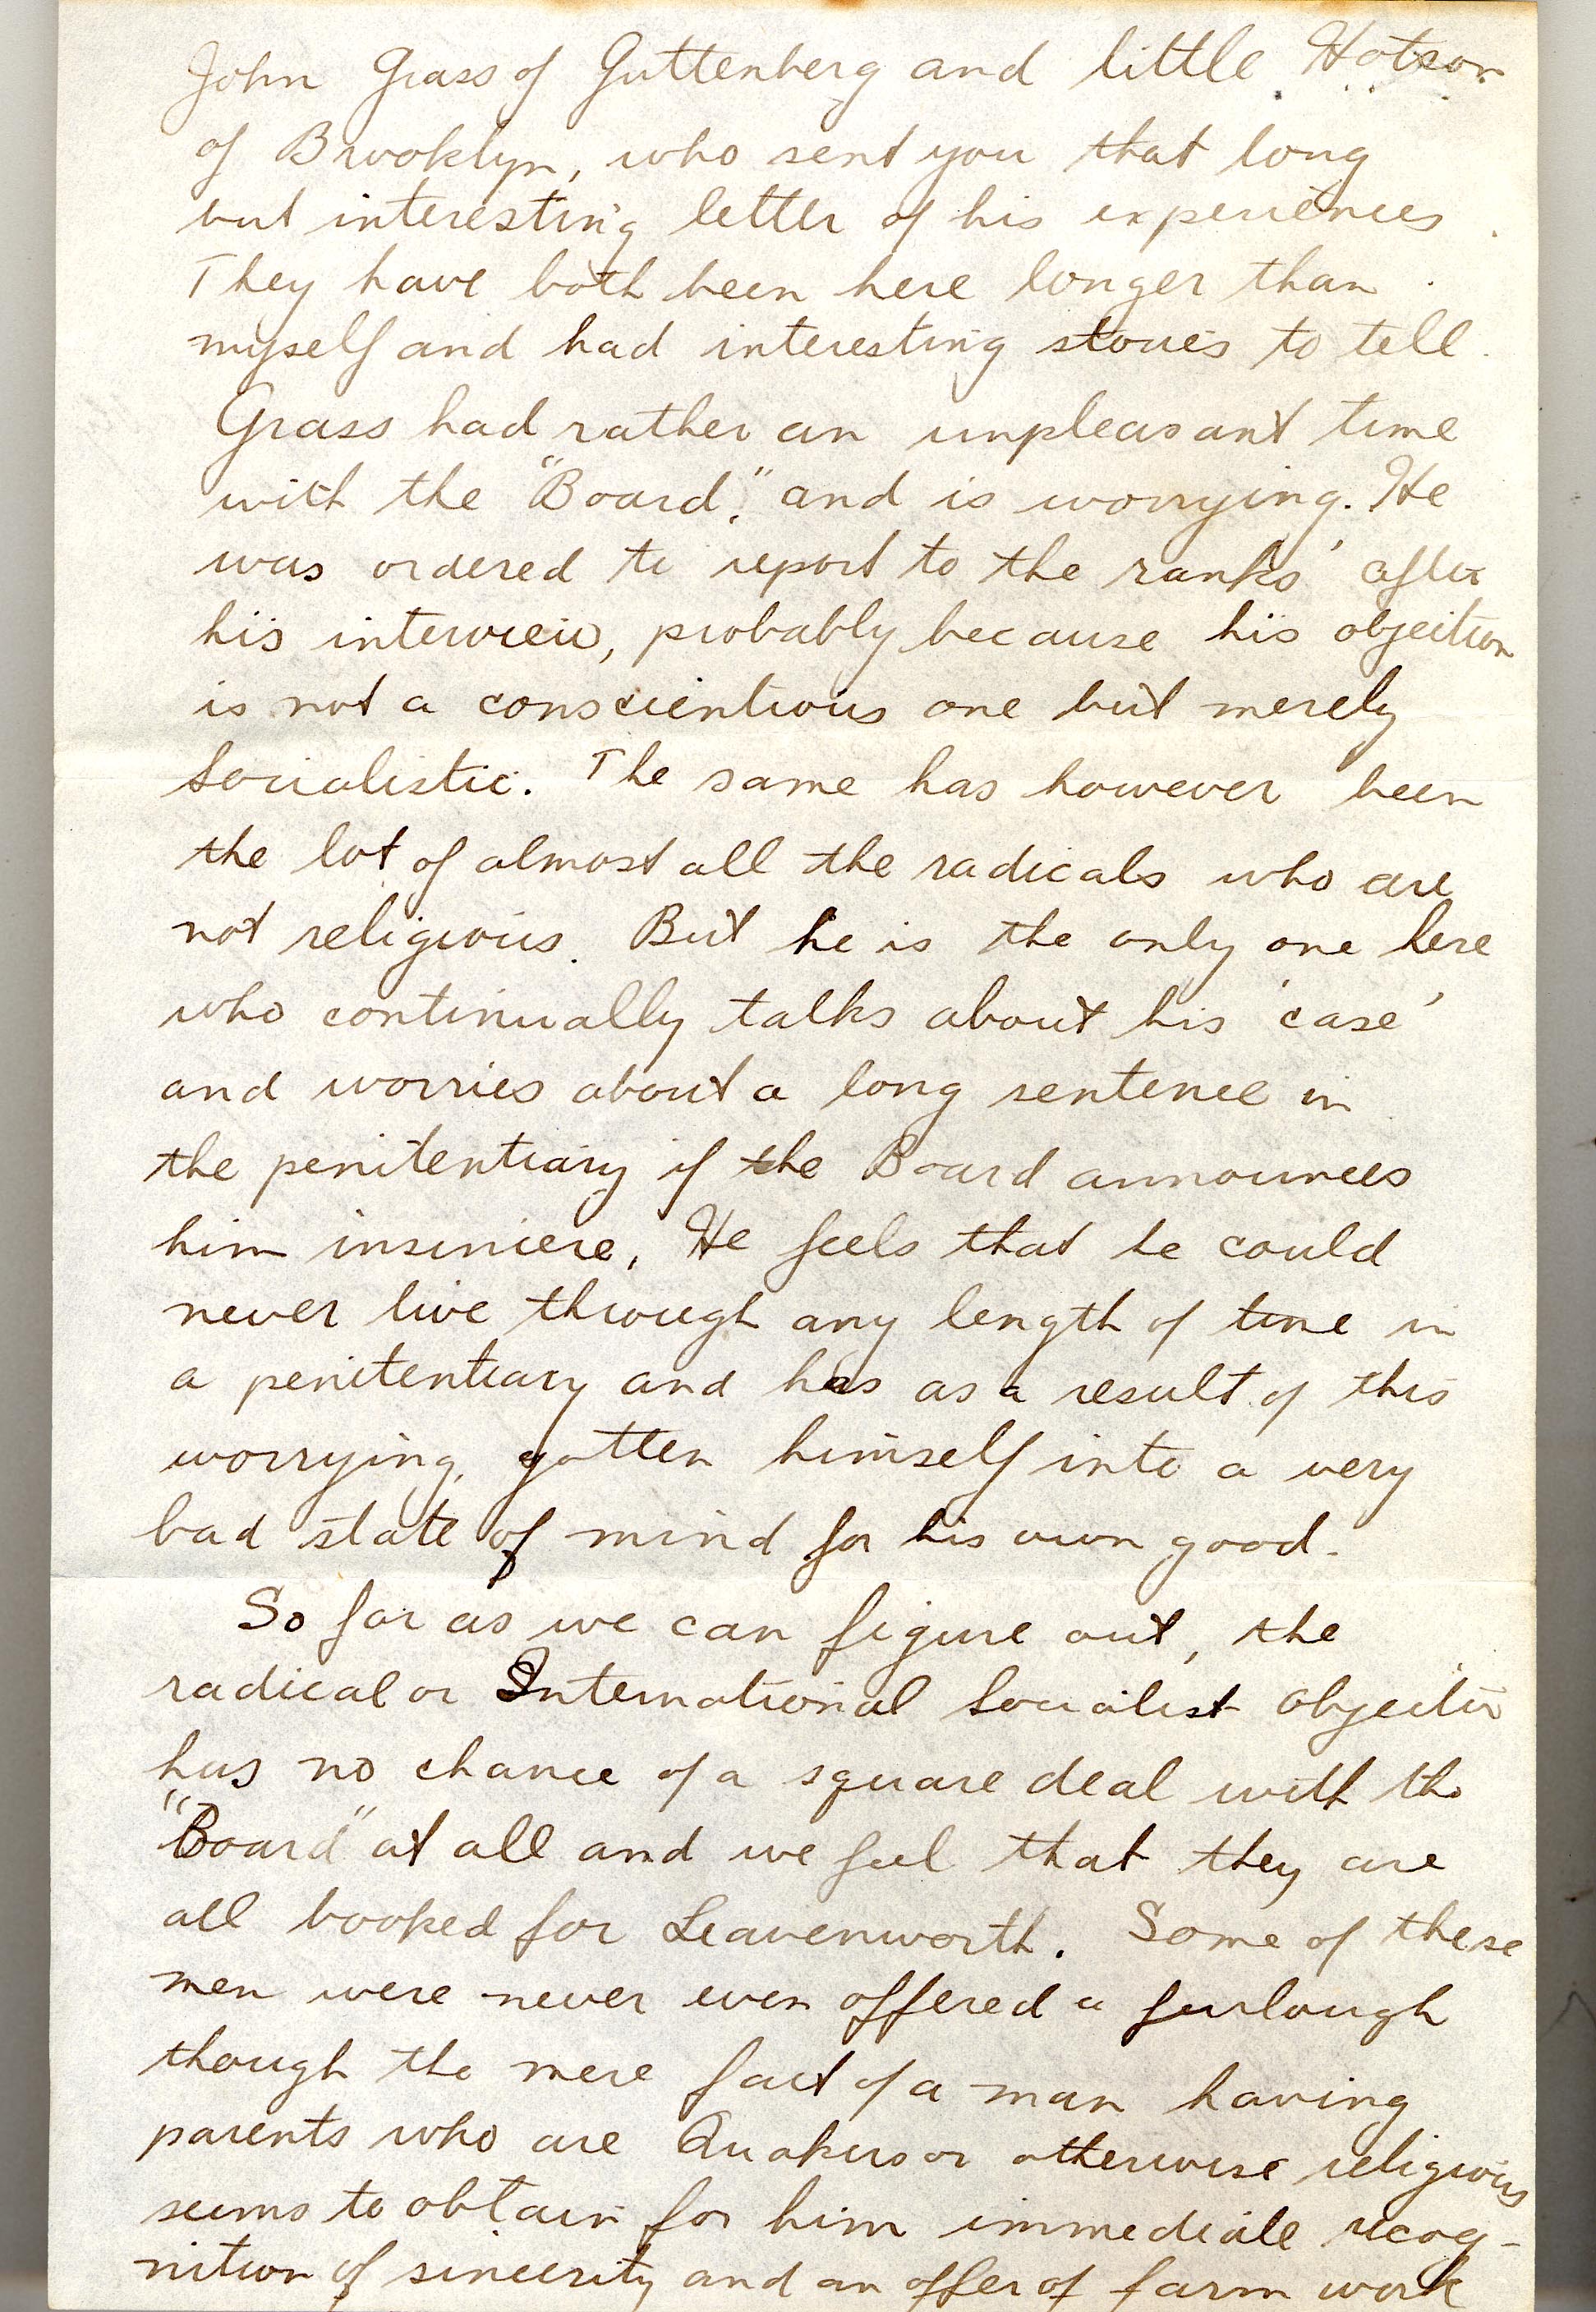 John Grass of Guttenberg and little Hotson
of Brooklyn, who sent you that long
but interesting letter of his experiences.
They have both been here longer than
myself and had interesting stories to tell.
Grass had rather an unpleasant time
with the "Board," and is worrying. He
was ordered to report to the 'ranks' after
his interview, probably because his objection
is not a conscientious one but merely
Socialistic. The same has however been
the lot of almost all the radicals who are
not religious. But he is the only one here
who continually talks about his 'case'
and worries about a long sentence in
the penitentiary if the Board announces
him insincere. He feels that he could
never live through any length of time in
a penitentiary and has as a result of this
worrying, gotten himself into a very
bad state of mind for his own good.
So far as we can figure out, the
radical or International Socialist objector
has no chance of a square deal with the
"Board" at all and we feel that they are
all booked for Leavenworth. Some of these
men were never even offered a furlough
though the mere fact of a man having
parents who are Quakers or otherwise religious
seems to obtain for him immediate recog-
nition of sincerity and an offer of farm work